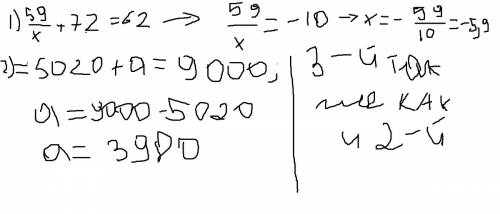 1) 59/x + 72 = 62 → 59/x = -10 → x = - 59/10 = -5,9
2) = 5020 + a = 9000;
a = 9000 - 5020
a = 3980
3-й так
же как
и 2-й